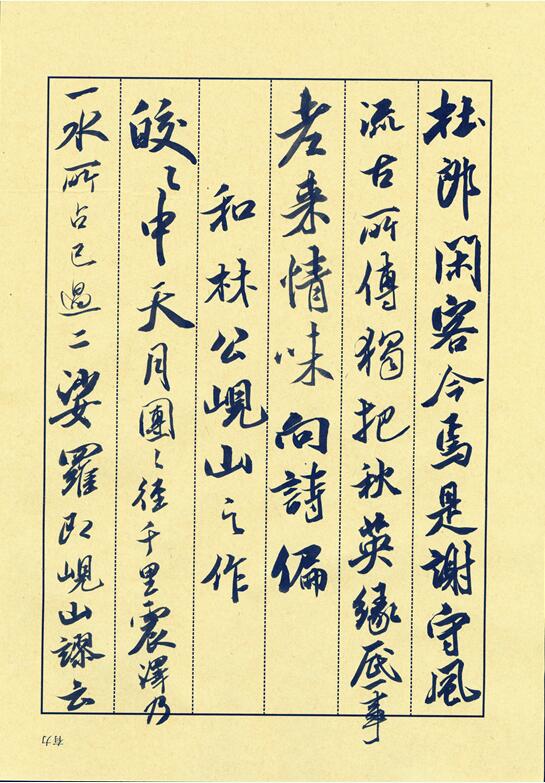 杜郎閑客今焉是謝守風
流古所傳獨把秋英緣底事
老来情味向詩偏
和林公峴山之作
皎〻中天月團〻徑千里震澤乃
一水所占已過二娑羅即峴山謬云
有力